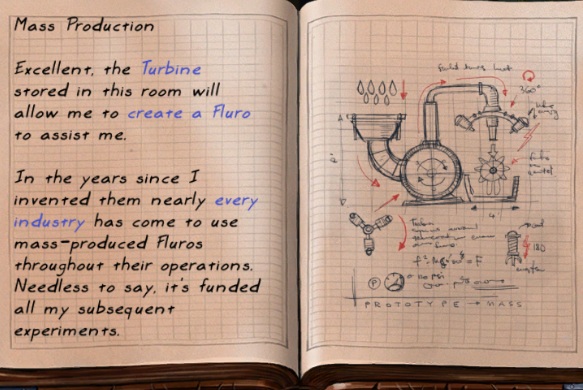 Mass Production
Excellent, the Turbine
stored in this room will
allow me to create a Fluro
to assist me.
In the years since I
invented them nearly every
industry has come to use
mass-produced Fluros
throughout their operations.
Needless to say, it's funded
all my subsequent
experiments.
360°
PROTOTYPE → MASS